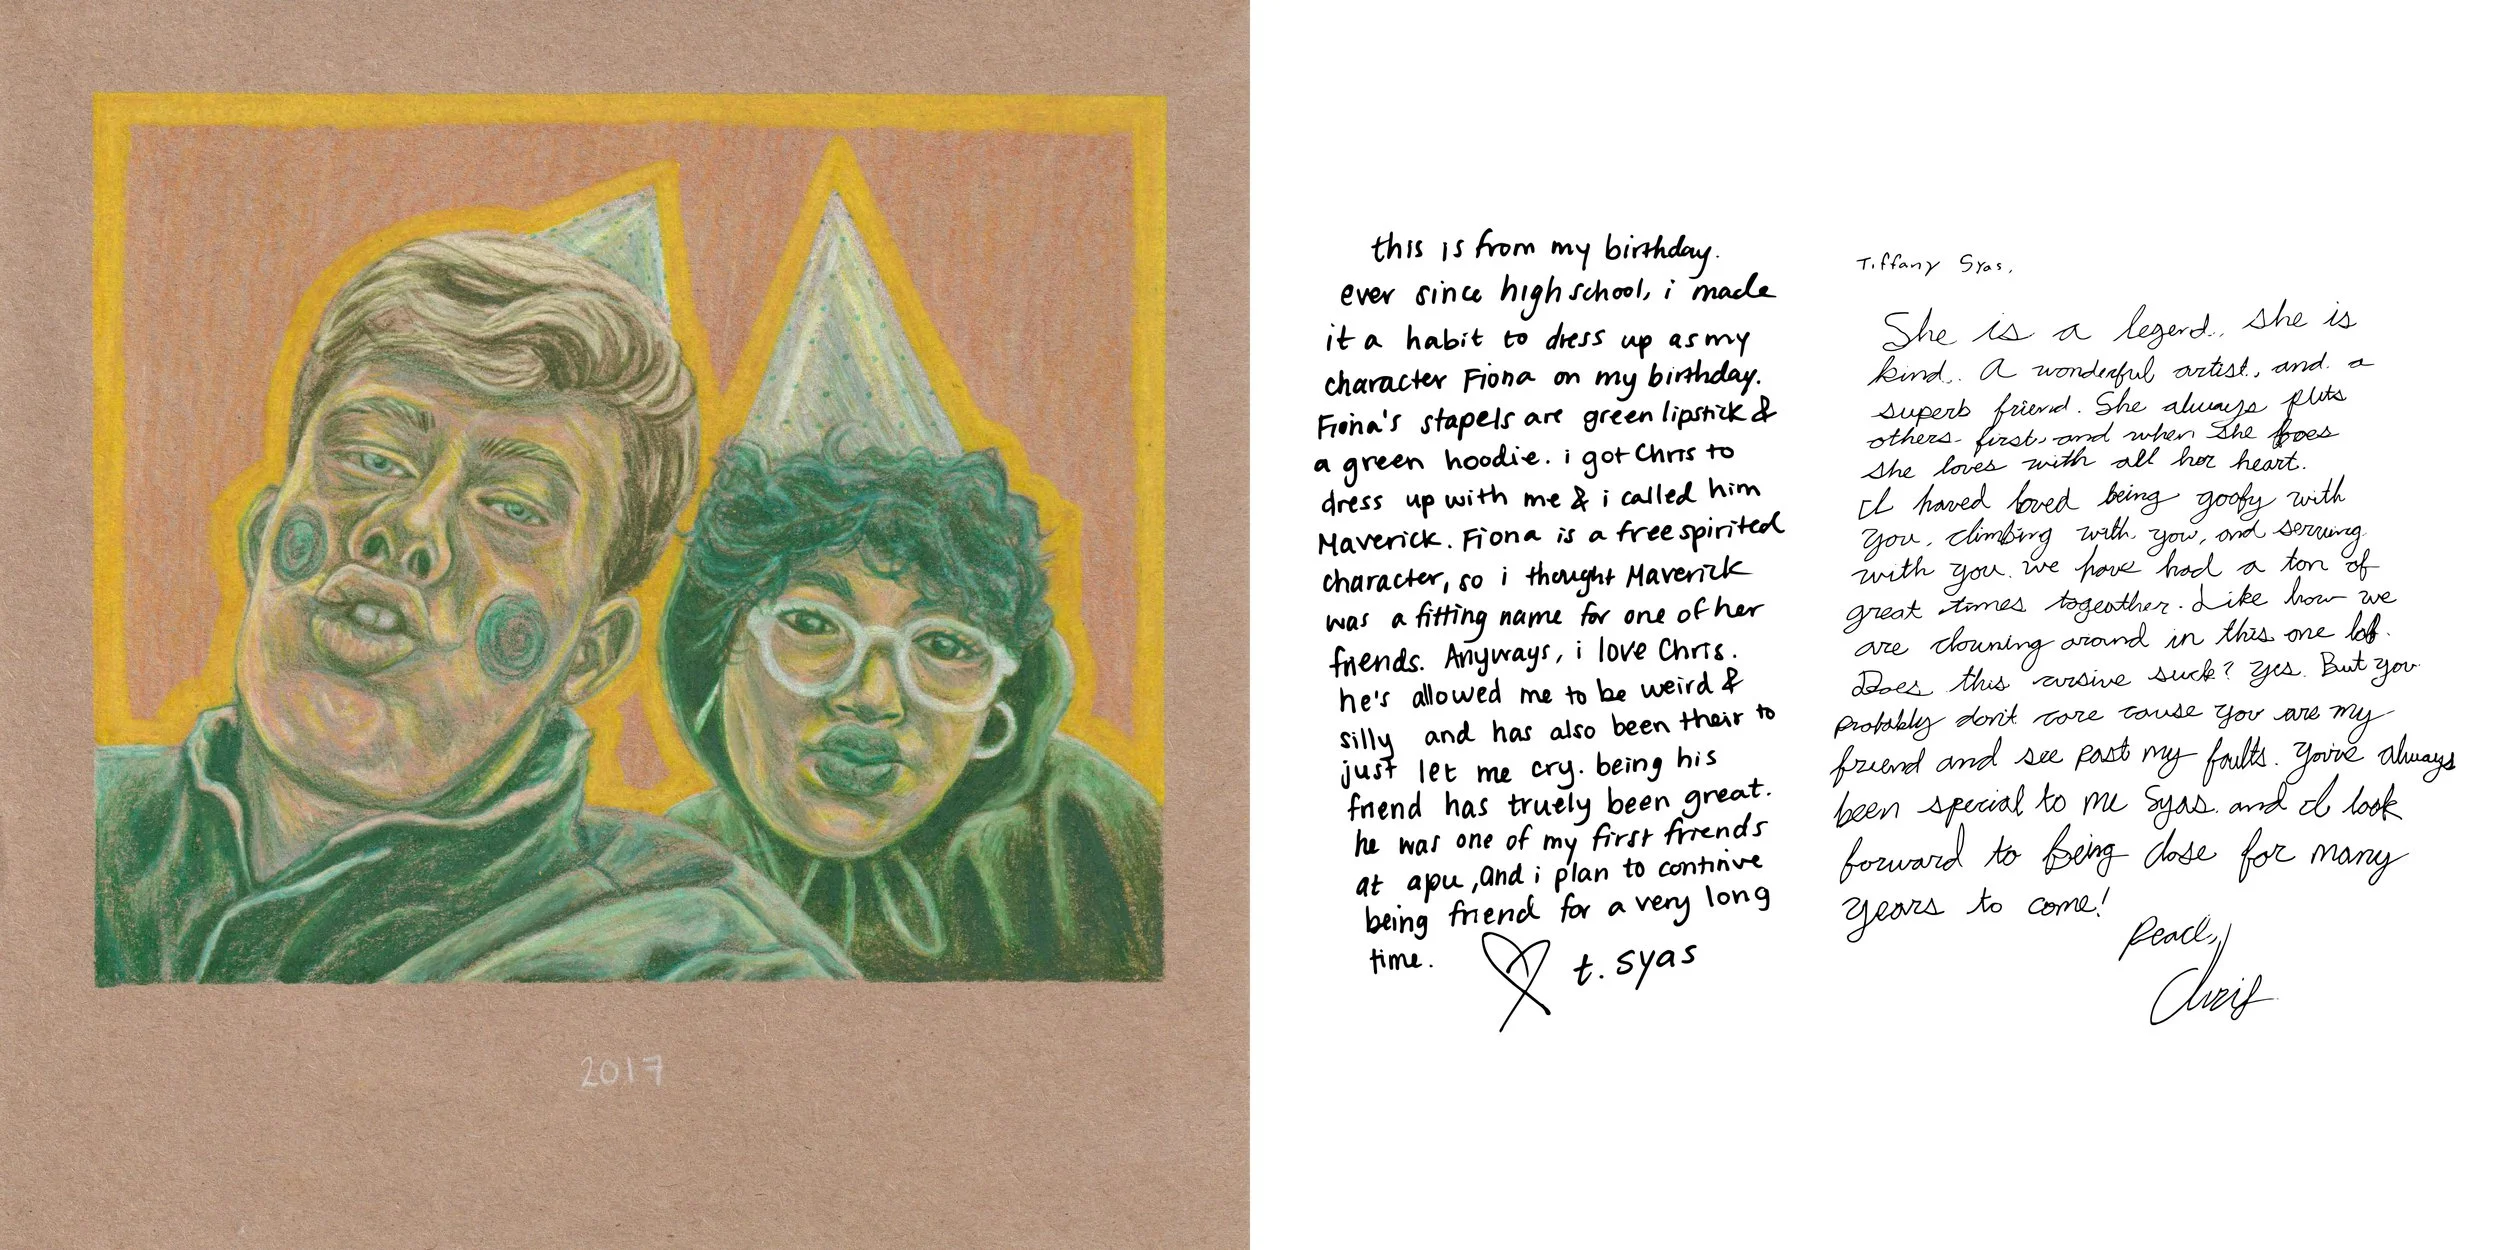 2017
this is from my birthday.
ever since high school, i made
it a habit to dress up as my
character Fiona on my birthday.
Fiona's stapels are green lipstick &
a green hoodie. i got Chris to
dress up with me & i called him
Maverick. Fiona is a free spirited
character, so i thought Maverick
was a fitting name for one of her
friends. Anyways, i love Chris.
he's allowed me to be weird &
silly and has also been their to
just let me cry. being his
friend has truely been great.
he was one of my first friends
at apu, and i plan to continue
being friend for a very long
time.
t. syas
Tiffany Syas,
She is a legend. She is
kind. A wonderful artist, and a
superb friend. She always puts
others first, and when she does
she loves with all her heart.
I haved loved being goofy with
you, climbing with you, and serving
with you. We have had a ton of
great times togeather. Like how we
are clowning around in this one lol.
Does this cursive suck? Yes. But you
probably don't care cause you are my
friend and see past my faults. You've always
been special to me Syas. and I look
forward to being close for many
years to come!
Peace,
Chris